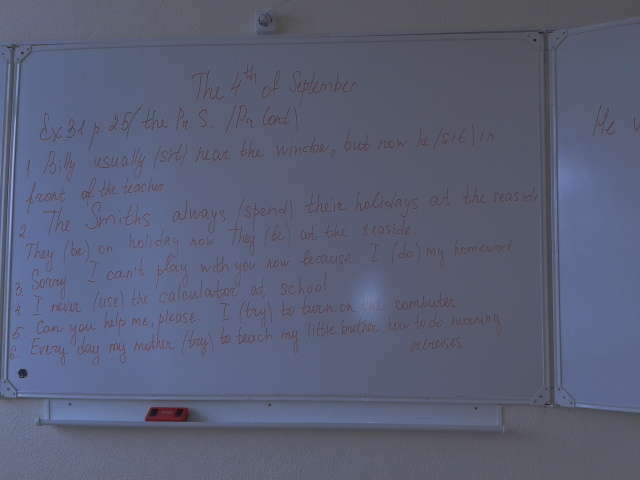 The 4th of September
Ex 31 p 25 / the Pr S. / Pr Cont)
1. Billy usually (sit) near the window, but now he (sit) in
front of the teacher.
2. The Smiths always (spend) their holidays at the seaside
They (be) on holiday now They (be) at the seaside.
3. Sorry I can't play with you now because I (do) my homework
4. I never (use) the calculator at school
5. Can you help me, please I (try) to turn on the computer
6. Every day my mother (try) to teach my little brother how to do morning
exercises
He